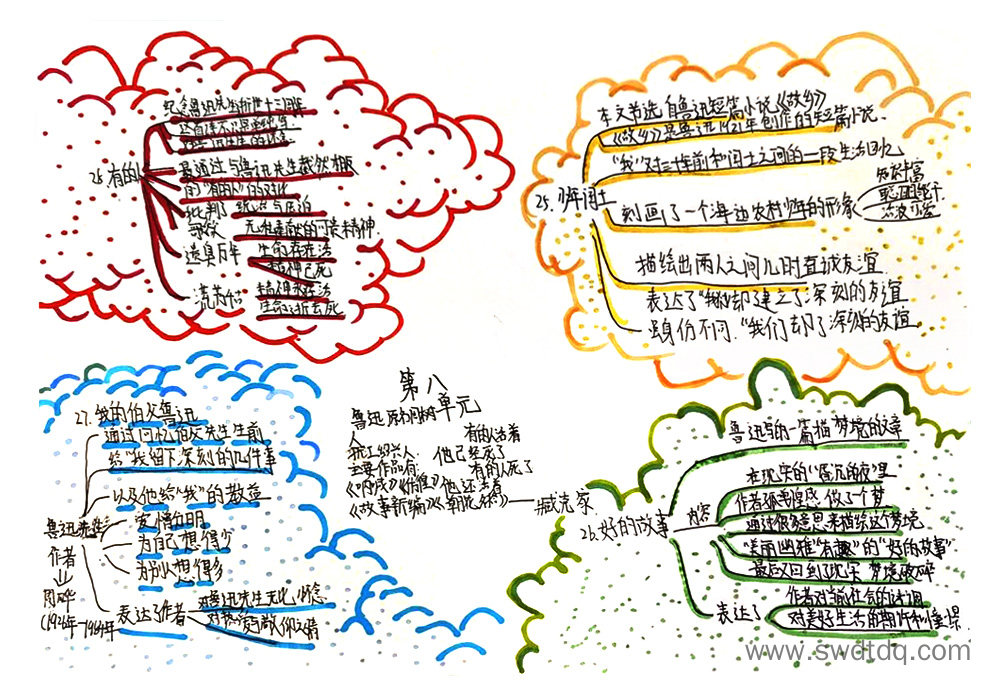 28.有的人
纪念鲁迅先生逝世十三周年
是通过与鲁迅先生截然相反
的"有的人"的对比
批判了 统治与压迫
歌颂 无私奉献的可贵精神.
遗臭万年 生命存在活
精神已死
流芳百 精神永在活
生命逝去死
25.少年闰土
本文节选自鲁迅短篇小说《故乡》
《故乡》是鲁迅1921年创作的短篇小说.
"我"对三十年前和闰土之间的一段生活回忆
刻画了一个海边农村少年的形象
知识丰富
聪明能干
活泼可爱
描绘出两人之间儿时真诚友谊
表达了"我们却建立了深刻的友谊
身份不同."我们却了深刻的友谊.
第八
单元
鲁迅 原名周树
人
浙江绍兴人.
主要作品有:
《呐喊》《彷徨》
《故事新编》《朝花夕拾》
有的人活着
他已经死了
有的人死了
他还活着
——臧克家
27.我的伯父鲁迅
通过回忆伯父先生生前
给"我留下深刻的几件事
以及他给"我"的教益
鲁迅先生
爱憎分明
为自己想得少
为别人想得多
作者
周晔
(1926年-1984年
表达了作者
对鲁迅先生无比怀念
26.好的故事
鲁迅写的一篇描梦境的文章
内容
在现实的"昏沉的夜"里
作者孤寂惶惑 做了个梦
"美丽幽雅"有趣"的"好的故事"
最后又回到了现实 梦境破碎
表达了
对美好生活的期许和憧憬.
www.swdtdq.com